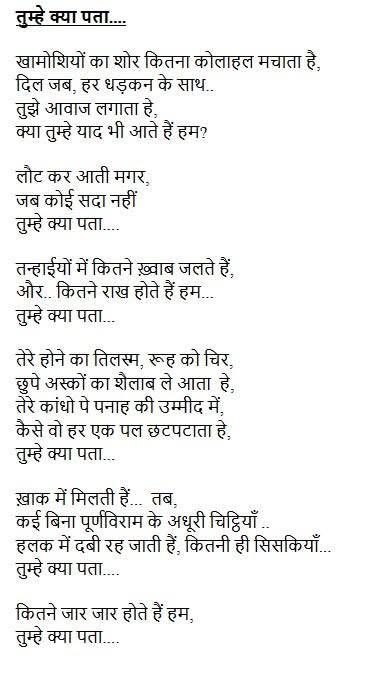 तुम्हे क्या पता....
खामोशियों का शोर कितना कोलाहल मचाता है,
दिल जब, हर धड़कन के साथ..
तुझे आवाज लगाता हे,
क्या तुम्हे याद भी आते हैं हम?
लौट कर आती मगर,
जब कोई सदा नहीं
तुम्हे क्या पता....
तन्हाईयों में कितने ख़्वाब जलते हैं,
और.. कितने राख होते हैं हम...
तुम्हे क्या पता...
तेरे होने का तिलस्म, रूह को चिर,
छुपे अस्कों का शैलाब ले आता  हे,
तेरे कांधो पे पनाह की उम्मीद में,
कैसे वो हर एक पल छटपटाता हे,
तुम्हे क्या पता...
ख़ाक में मिलती हैं...  तब,
कई बिना पूर्णविराम के अधूरी चिट्ठियाँ ..
हलक में दबी रह जाती हैं, कितनी ही सिसकियाँ...
तुम्हे क्या पता....
कितने जार जार होते हैं हम,
तुम्हे क्या पता....